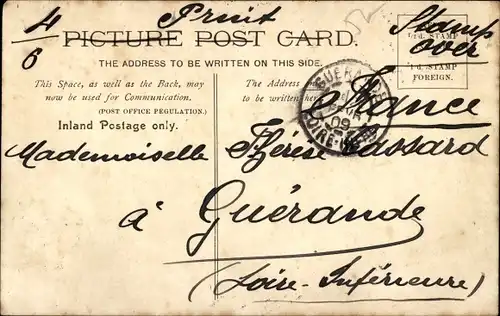 4/6 Print Stamp over
PICTURE POST CARD.
THE ADDRESS TO BE WRITTEN ON THIS SIDE.
½d. STAMP
1d. STAMP
FOREIGN.
This Space, as well as the Back, may
now be used for Communication.
(POST OFFICE REGULATION.)
Inland Postage only.
The Address
to be written here
France
GUÉRANDE
09
LOIRE-INF
Mademoiselle Thérèse Lassard
à Guérande
(Loire-Inférieure)